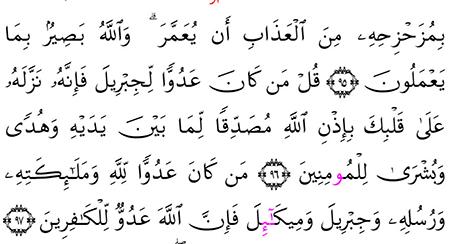 بِمُزَحْزِحِهِۦ مِنَ ٱلْعَذَابِ أَن يُعَمَّرَ ۗ وَٱللَّهُ بَصِيرٌۢ بِمَا
يَعْمَلُونَ ﴿٩٥﴾ قُلْ مَن كَانَ عَدُوًّا لِّجِبْرِيلَ فَإِنَّهُۥ نَزَّلَهُۥ
عَلَىٰ قَلْبِكَ بِإِذْنِ ٱللَّهِ مُصَدِّقًا لِّمَا بَيْنَ يَدَيْهِ وَهُدًى
وَبُشْرَىٰ لِلْمُومِنِينَ ﴿٩٦﴾ مَن كَانَ عَدُوًّا لِّلَّهِ وَمَلَـٰٓئِكَتِهِۦ
وَرُسُلِهِۦ وَجِبْرِيلَ وَمِيكَـٰٓئِلَ فَإِنَّ ٱللَّهَ عَدُوٌّ لِّلْكَـٰفِرِينَ ﴿٩٧﴾